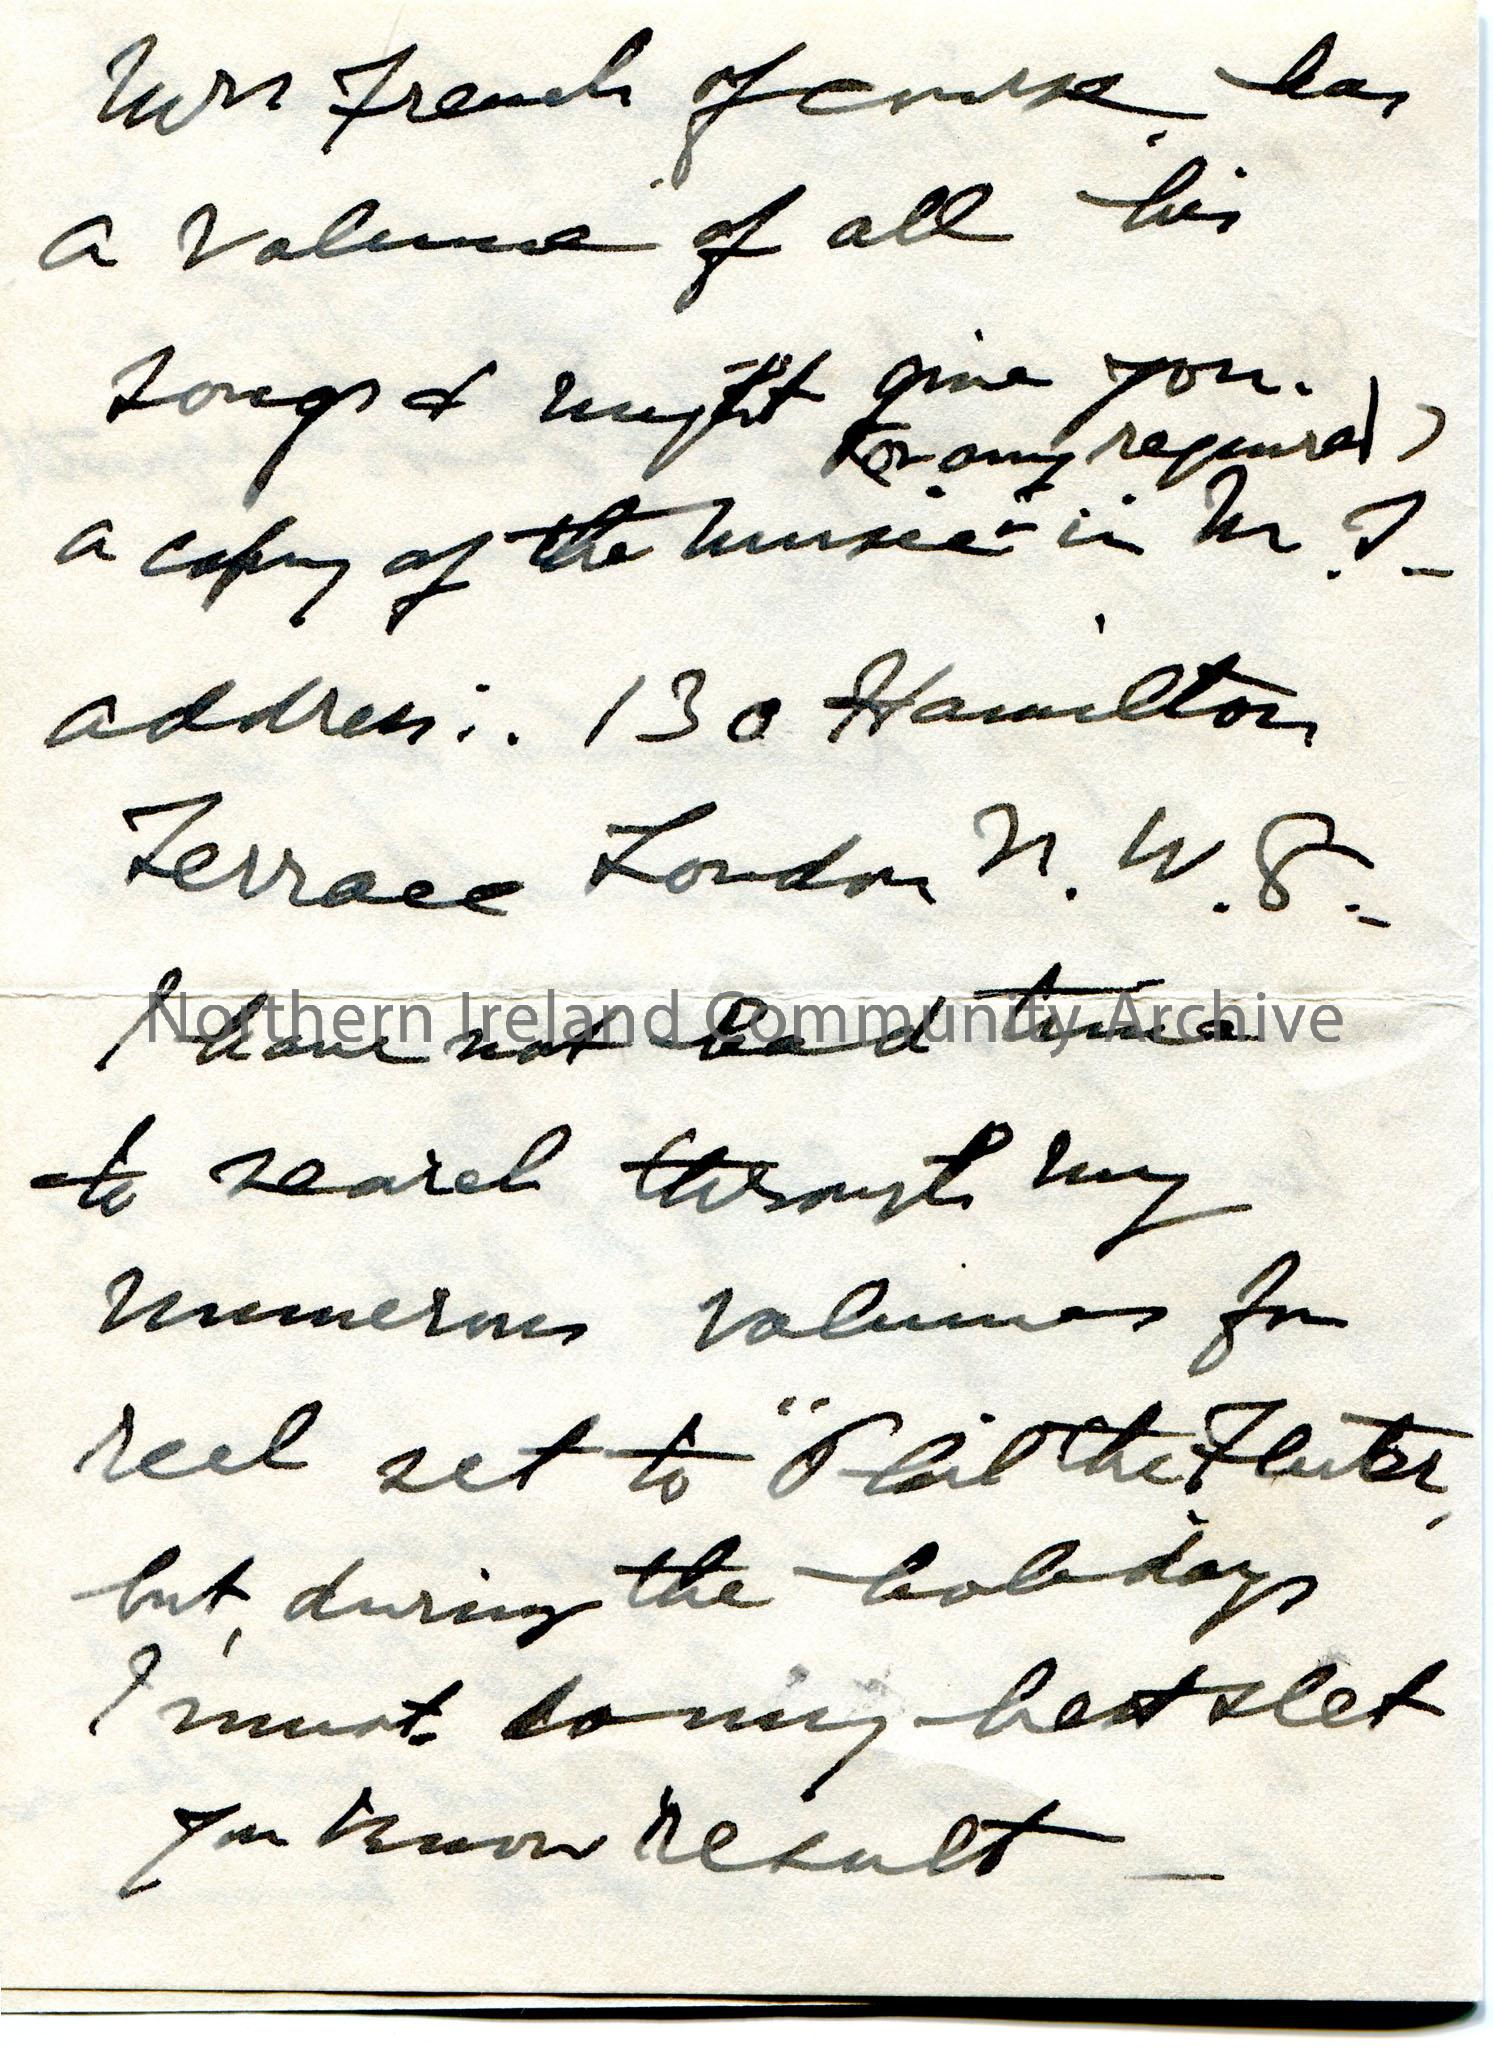 Mrs French of course, has
a volume of all his
songs & might give you.
(or any required)
a copy of the music in M.S.
address:. 130 Hamilton
Terrace London N.W.8.-
Northern Ireland Community Archive
I have not had time
to search through my
numerous volumes for
reel set to "Phil the Fluter,
but, during the holidays
I must do my best & let
you know result —